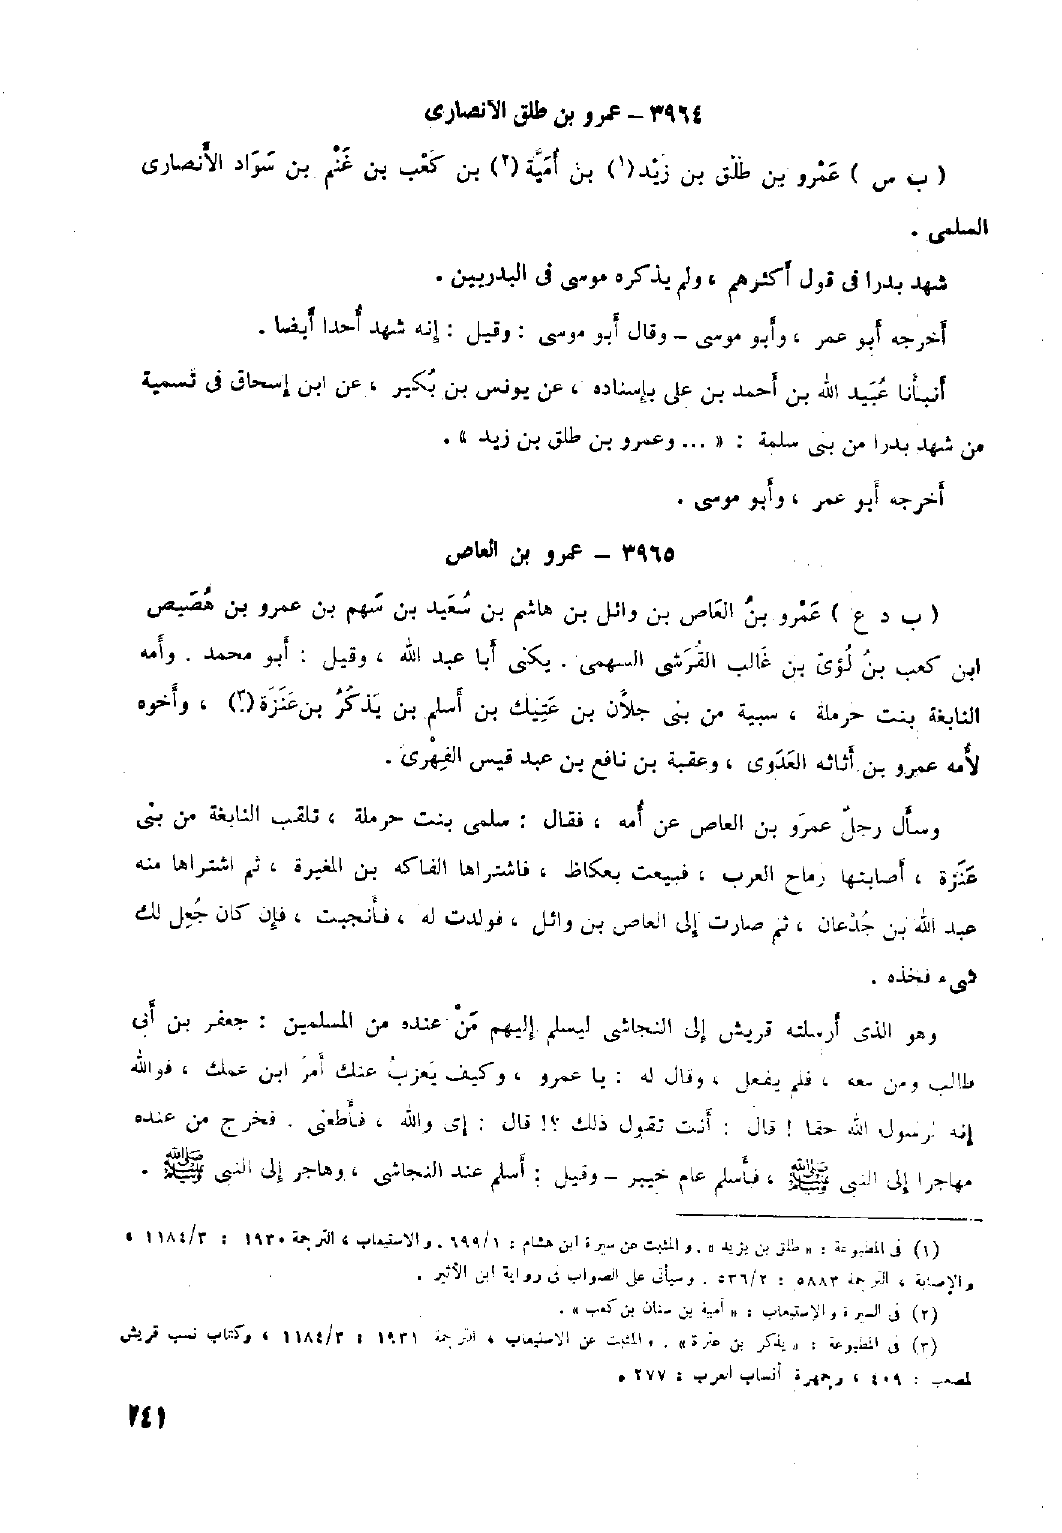 ٣٩٦٤ – عمرو بن طلق الانصارى
( ب س ) عَمْرو بن طَلْق بن زَيْد(١) بن أُمَيَّة(٢) بن كَعْب بن غَنْم بن سَوَاد الأنصارى
السلمى .
شهد بدرا فى قول أكثرهم ، ولم يذكره موسى فى البدريين .
أخرجه أبو عمر ، وأبو موسى – وقال أبو موسى : وقيل : إنه شهد أُحدا أيضا .
أنبأنا عُبَيد الله بن أحمد بن على بإسناده ، عن يونس بن بُكير ، عن ابن إسحاق فى تسمية
من شهد بدرا من بنى سلمة : « ... وعمرو بن طلق بن زيد » .
أخرجه أبو عمر ، وأبو موسى .
٣٩٦٥ – عمرو بن العاص
( ب د ع ) عَمْرو بنُ العَاص بن وائل بن هاشم بن سُعَيد بن سَهم بن عمرو بن هُصَيص
ابن كعب بنُ لُؤىّ بن غَالب القُرَشى السهمى . يكنى أبا عبد الله ، وقيل : أبو محمد . وأمه
النابغة بنت حرملة ، سبية من بنى جلاَّن بن عَتِيك بن أسلم بن يَذكُرُ بن عَنَزَة(٣) ، وأخوه
لأُمه عمرو بن أثاثه العَدَوى ، وعقبة بن نافع بن عبد قيس الفِهْرىّ .
وسأل رجلّ عمرَو بن العاص عن أُمه ، فقال : سلمى بنت حرملة ، تلقب النابغة من بنى
عَنَزة ، أصابتها رماح العرب ، فبيعت بعكاظ ، فاشتراها الفاكه بن المغيرة ، ثم اشتراها منه
عبد الله بن جُدْعان ، ثم صارت إلى العاص بن وائل ، فولدت له ، فأنجبت ، فإن كان جُعِل لك
شىء فخذه .
وهو الذى أرسلته قريش إلى النجاشى ليسلم إليهم مَنْ عنده من المسلمين : جعفر بن أبى
طالب ومن معه ، فلم يفعل ، وقال له : يا عمرو ، وكيف يَعزبُ عنك أمرُ ابن عمك ، فوالله
إنه لرسول الله حقا ! قال : أنت تقول ذلك ؟! قال : إى والله ، فأطعنى . فخرج من عنده
مهاجرا إلى النبى ﷺ ، فأسلم عام خيبر – وقيل : أسلم عند النجاشى ، وهاجر إلى النبى ﷺ .
(١) فى المطبوعة : « طلق بن يزيد » . والمثبت عن سيرة ابن هشام : ٦٩٩/١ . والاستيعاب ، الترجمة ١٩٣٠ : ١١٨٤/٣ ،
والإصابة ، الترجمة ٥٨٨٣ : ٥٣٦/٢ . وسيأتى على الصواب فى رواية ابن الأثير .
(٢) فى السيرة والإستيعاب : « أمية بن سنان بن كعب » .
(٣) فى المطبوعة : « يذكر بن عترة » . والمثبت عن الاستيعاب ، الترجمة ١٩٣١ : ١١٨٤/٣ ، وكتاب نسب قريش
لمصعب : ٤٠٩ ، وجمهرة أنساب العرب : ٢٧٧ .
٢٤١